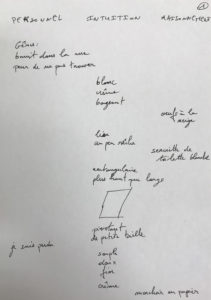 PERSONNEL INTUITION RAISONNEMENT
Gêne:
bruit dans la rue
peur de ne pas trouver
blanc
crème
oeufs à la
neige
lisse
un peu
serviette de
toilette blanche
rectangulaire
plus haut que large
de petite taille
je suis perdu
souple
doux
fin
crème
mouchoir en papier